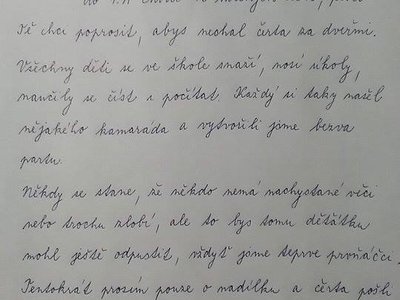 Tě chci poprosit, abys nechal čerta za dveřmi.
Všechny děti se ve škole snaží, nosí úkoly,
naučily se číst i počítat. Každý si taky našel
nějakého kamaráda a vytvořili jsme bezva
partu.
Někdy se stane, že někdo nemá nachystané věci
nebo trochu zlobí, ale to bys tomu děťátku
mohl ještě odpustit, vždyť jsme teprve prvňáčci.
Tentokrát prosím pouze o nadílku a čerta pošli